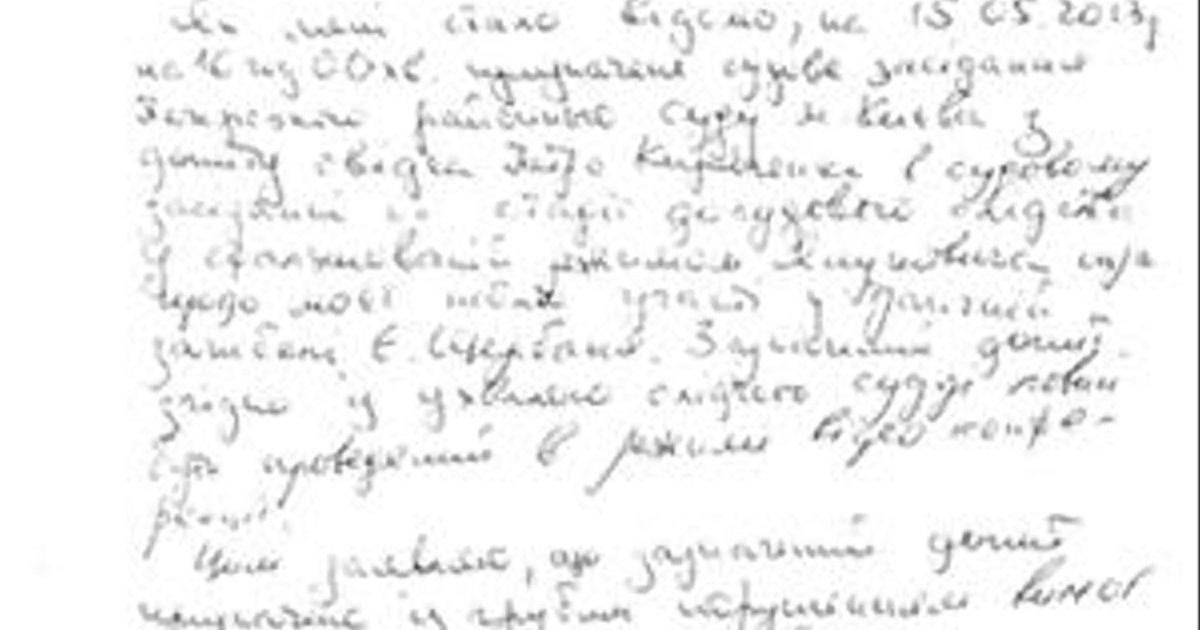 Як мені стало відомо, на 15.05.2013р
на 16 год 00 хв. призначене судове засідання
Печерського районного суду м Києва з
допиту свідка Кириченка в судовому
засіданні на стадії досудового слідства
у режимом Януковича
щодо моєї участі у
Є. Щербаня. Зазначений допит
згідно із ухвалою слідчого судді повин
бути проведений в режимі відео конфе-
ренції.
Цим заявляю, що зазначений допит
призначено із грубим порушенням вимог